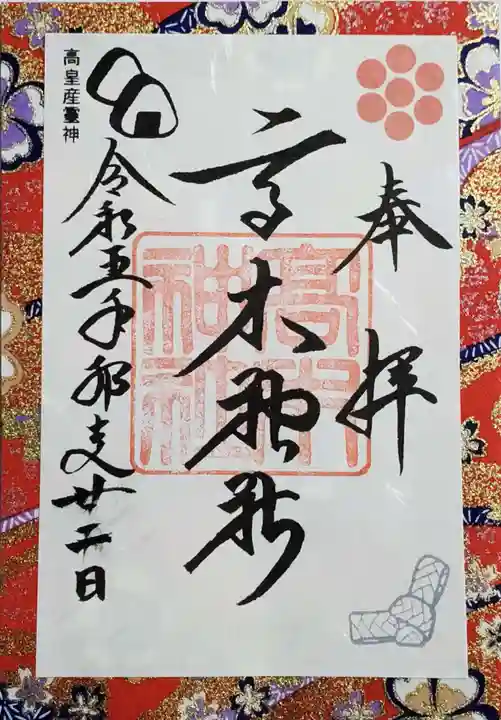 奉拝
高木神社
高木神社
高皇産靈神
令和五年卯支廿二日